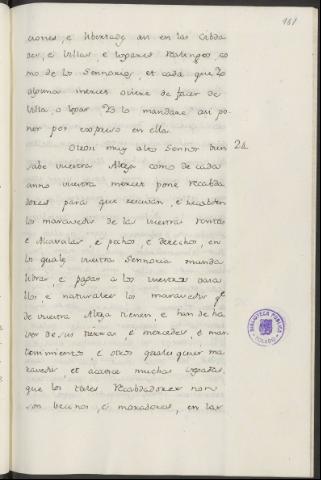 161
ciones, e libertades asi en las Cibda
des, e Villas, e logares Realengos, co
mo de los Sennorios, et cada que Yo
alguna merced oviere de facer de
Villa, o logar Yo lo mandare asi po
ner por expreso en ella.
Otrosi muy alto Sennor bien 24.
sabe vuestra Alteza como de cada
anno vuestra merced pone Recabda
dores para que reciban, e recabden
los maravedis de las vuestras rentas
e Alcavalas, e pechos, e derechos, en
los quales vuestra Sennoria manda
librar, e pagar a los vuestros vasa
llos, e naturales los maravedis qe
de vuestra Alteza tienen, e han de ha
ver de sus tierras, e mercedes, e man
tenimientos, e otros qualesquier ma
ravedis, et acaece muchas vegadas,
que los tales Recabdadores non
son vecinos, e moradores, en las
BIBLIOTECA PUBLICA
TOLEDO